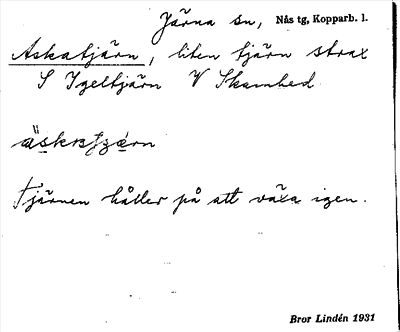 Järna sn, Nås tg, Kopparb. l.
Askatjärn, liten tjärn strax
S Igeltjärn V Skamhed.
Tjärnen håller på att växa igen.
Bror Lindén 1931